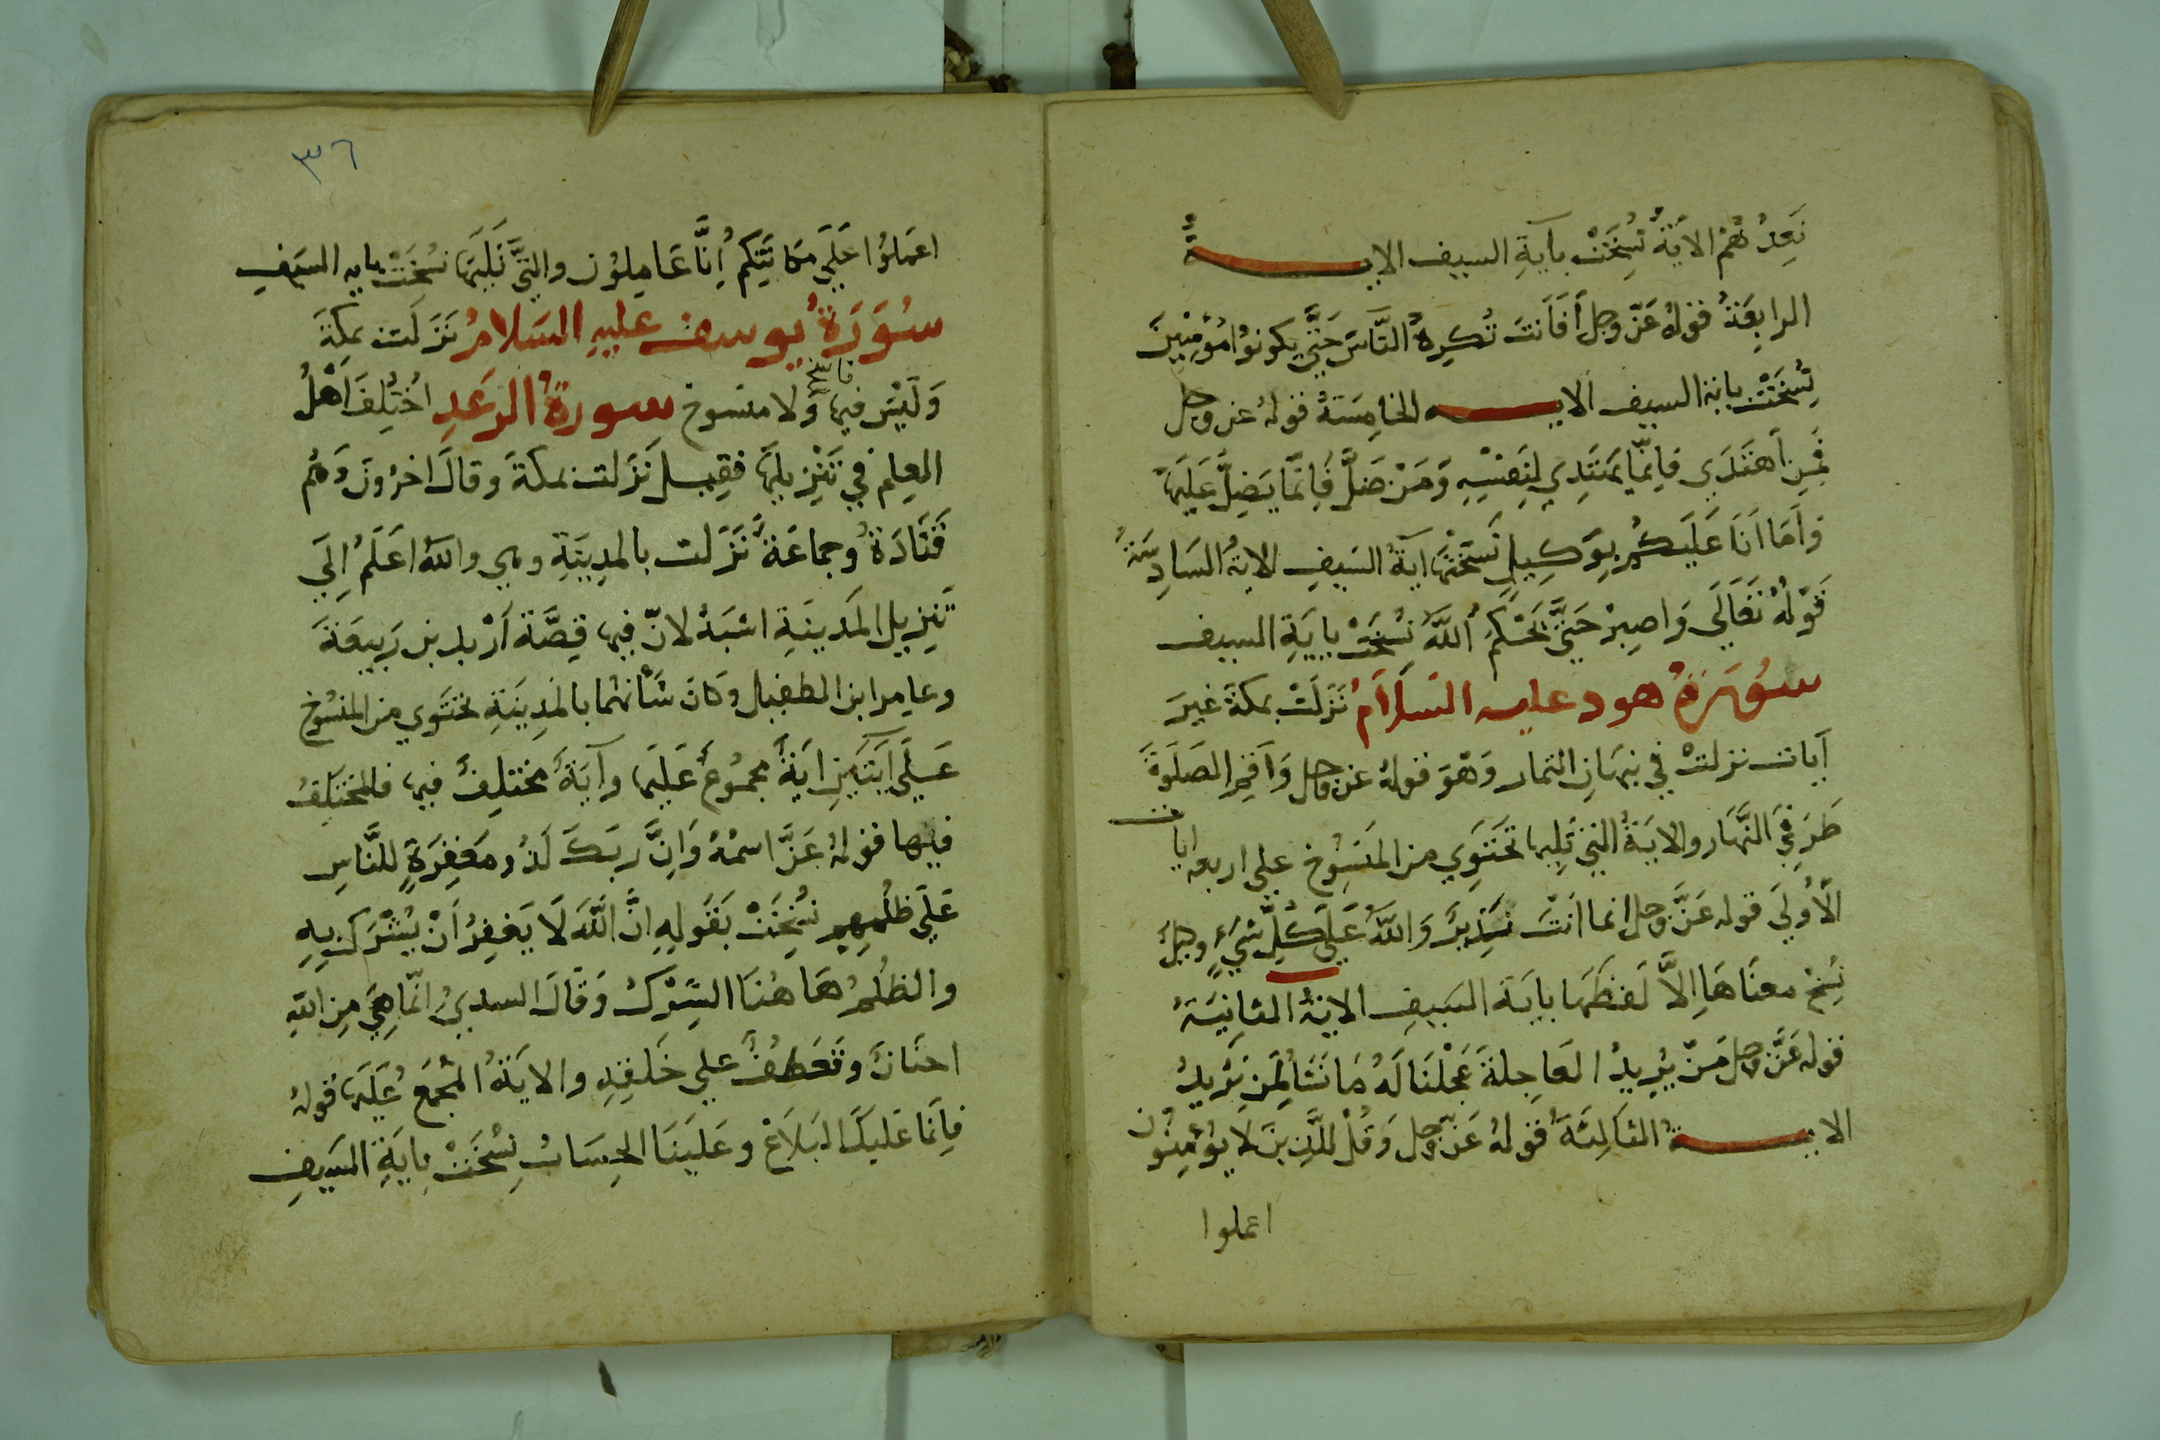 نَعِدُهُمْ الايَةُ نُسِخَتْ بآيَةِ السيف الايـــــة
الرابِعَةُ قولهُ عَزّ وجل أَفَأَنتَ تُكرِهُ النَّاسَ حَتَّى يكونُوا مُؤمِنِينَ
نُسِخَتْ باية السيف الايـــــه الخامِسَةُ قولهُ عز وجل
فَمِن أهتَدَي فإنمَّا يَهتَدِي لِنَفسِهِ وَمَنْ ضَلَّ فَإِنَّمَا يَضِلُّ عَلَيَها
وَأَمَا انَا عَلَيكُم بوَكِيلٍ نَسَخَتْهَا آيَةُ السَيفِ الايةُ السَادِسَةُ
قَوْلُهُ تَعَالَي وَاصبِرْ حَتَّى يَحْكُمَ اللَّهُ نُسِخَتْ بايَةِ السيف
سُورَةُ هود عليه السَلاَمُ نَزَلَتْ بمكةَ غيرَ
آيات نزلتْ في نبهان التمار وَهُوَ قولهُ عز وجل وَأقِم الصَلَوةَ
طَرَفِيَ النَّهَار والايَةُ التي تَلِيها تَحتَوِي من المَنسُوخِ علي اربع ايات
الأُولَي قوله عَزَّ وجل انما انتَ نَذِيرٌ وَاللَّهُ عَلَي كُلِّ شَيءٍ وكيلٌ
نُسِخَ معنَاهَا إلاَّ لَفظَها بايَة السَيفِ الايةُ الثانيَةُ
قوله عَزَّ وجل مَنّ يُرِيدُ العَاجِلةَ عَجلنَا لَهُ مَا نَشَأُ لِمَن نُرِيدُ
الايـــــة الثالِثَةُ قولهُ عَزَّ وجل وَقُلْ للَّذِينَ لا يُؤمِنُون
اعملوا
٣٦
اعمَلُوا عَلَي مَكَانَتِكُم إِنَّا عَامِلُون والتِيَّ تَلِيَها نُسِخَتْ بايه السيَفِ
سُورَةُ يوسف عليهِ السَلامُ نَزَلَت بمكةَ
وَلَيْسَ فيها ناسخ وَلا منسوخ سورةُ الرَعَدِ اُختُلِفَ أهْلُ
العِلم في تَنْزِيلِهَا فقِيل نَزَلت بمكةَ وقالَ اخرُونَ وَهُم
قَتَادَةُ وجماعَةٌ نَزَلت بالمدِينَةِ وهي واللهُ اعَلَمُ إلَي
تَنزِيل المَدينَةِ اشبَهُ لانّ فيها قِصَّةَ أرْبد بن رَبِيعَةَ
وعامر ابن الطفيل وَكانَ شَأنهما بالمَدِينَةِ تحتَوِي من المنسُوخِ
عَلَي آيَتَينِ ايَةٌ مجموُعٌ عَلَيها وآيَةٌ مختلِفٌ فيها فالمختَلِفُ
فيها قولهُ عَزَّ اسمُهُ وَإنَّ ربَكَ لَذُو مَغفِرَةٍ للنَّاسِ
عَلَي ظلُمِهِم نُسِخَتْ بقَولِهِ انَّ اللَّهَ لَا يَغفِرُ أَنْ يُشْرَكَ بِهِ
والظُلمُ هَاهُنَا الشِرْكُ وَقَالَ السدِيُ انّمَا هِيَ مِن اللهِ
احنَانٌ وتعَطفٌ علي خَلقِهِ والايَةُ المُجمَعُ عَلَيها قولهُ
فإنَمَا عَلَيكَ البَلَاغ وعَلَينَا الحِسَابُ نُسِخَتْ بايَةِ السَيفِ